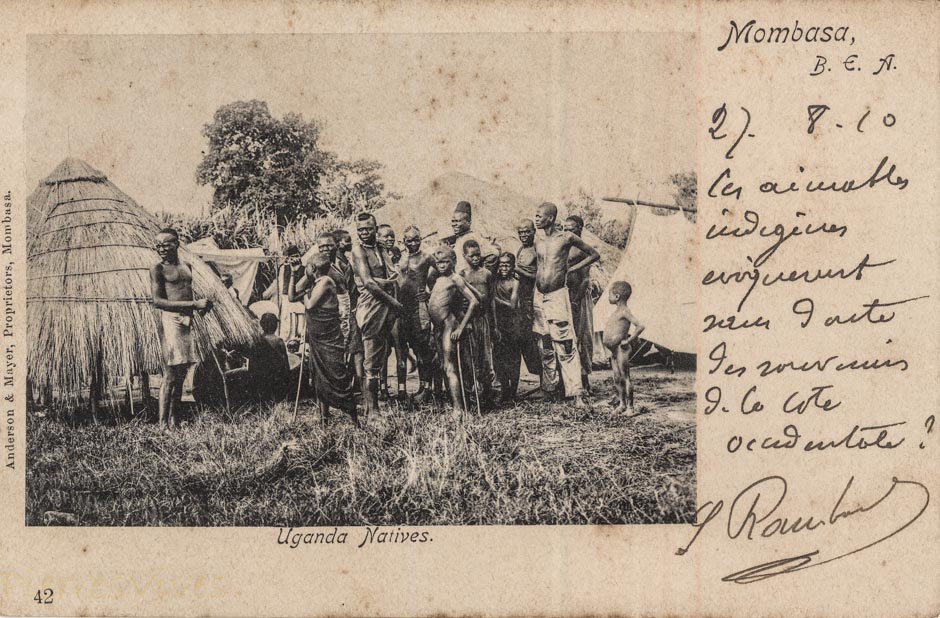 Mombasa,
B. E. A.
27. 8. 10
Ces aimables
indigènes
évoqueront
sans doute
des souvenirs
de la Côte
occidentale ?
Anderson & Mayer, Proprietors, Mombasa.
Uganda Natives.
42
PierresVives